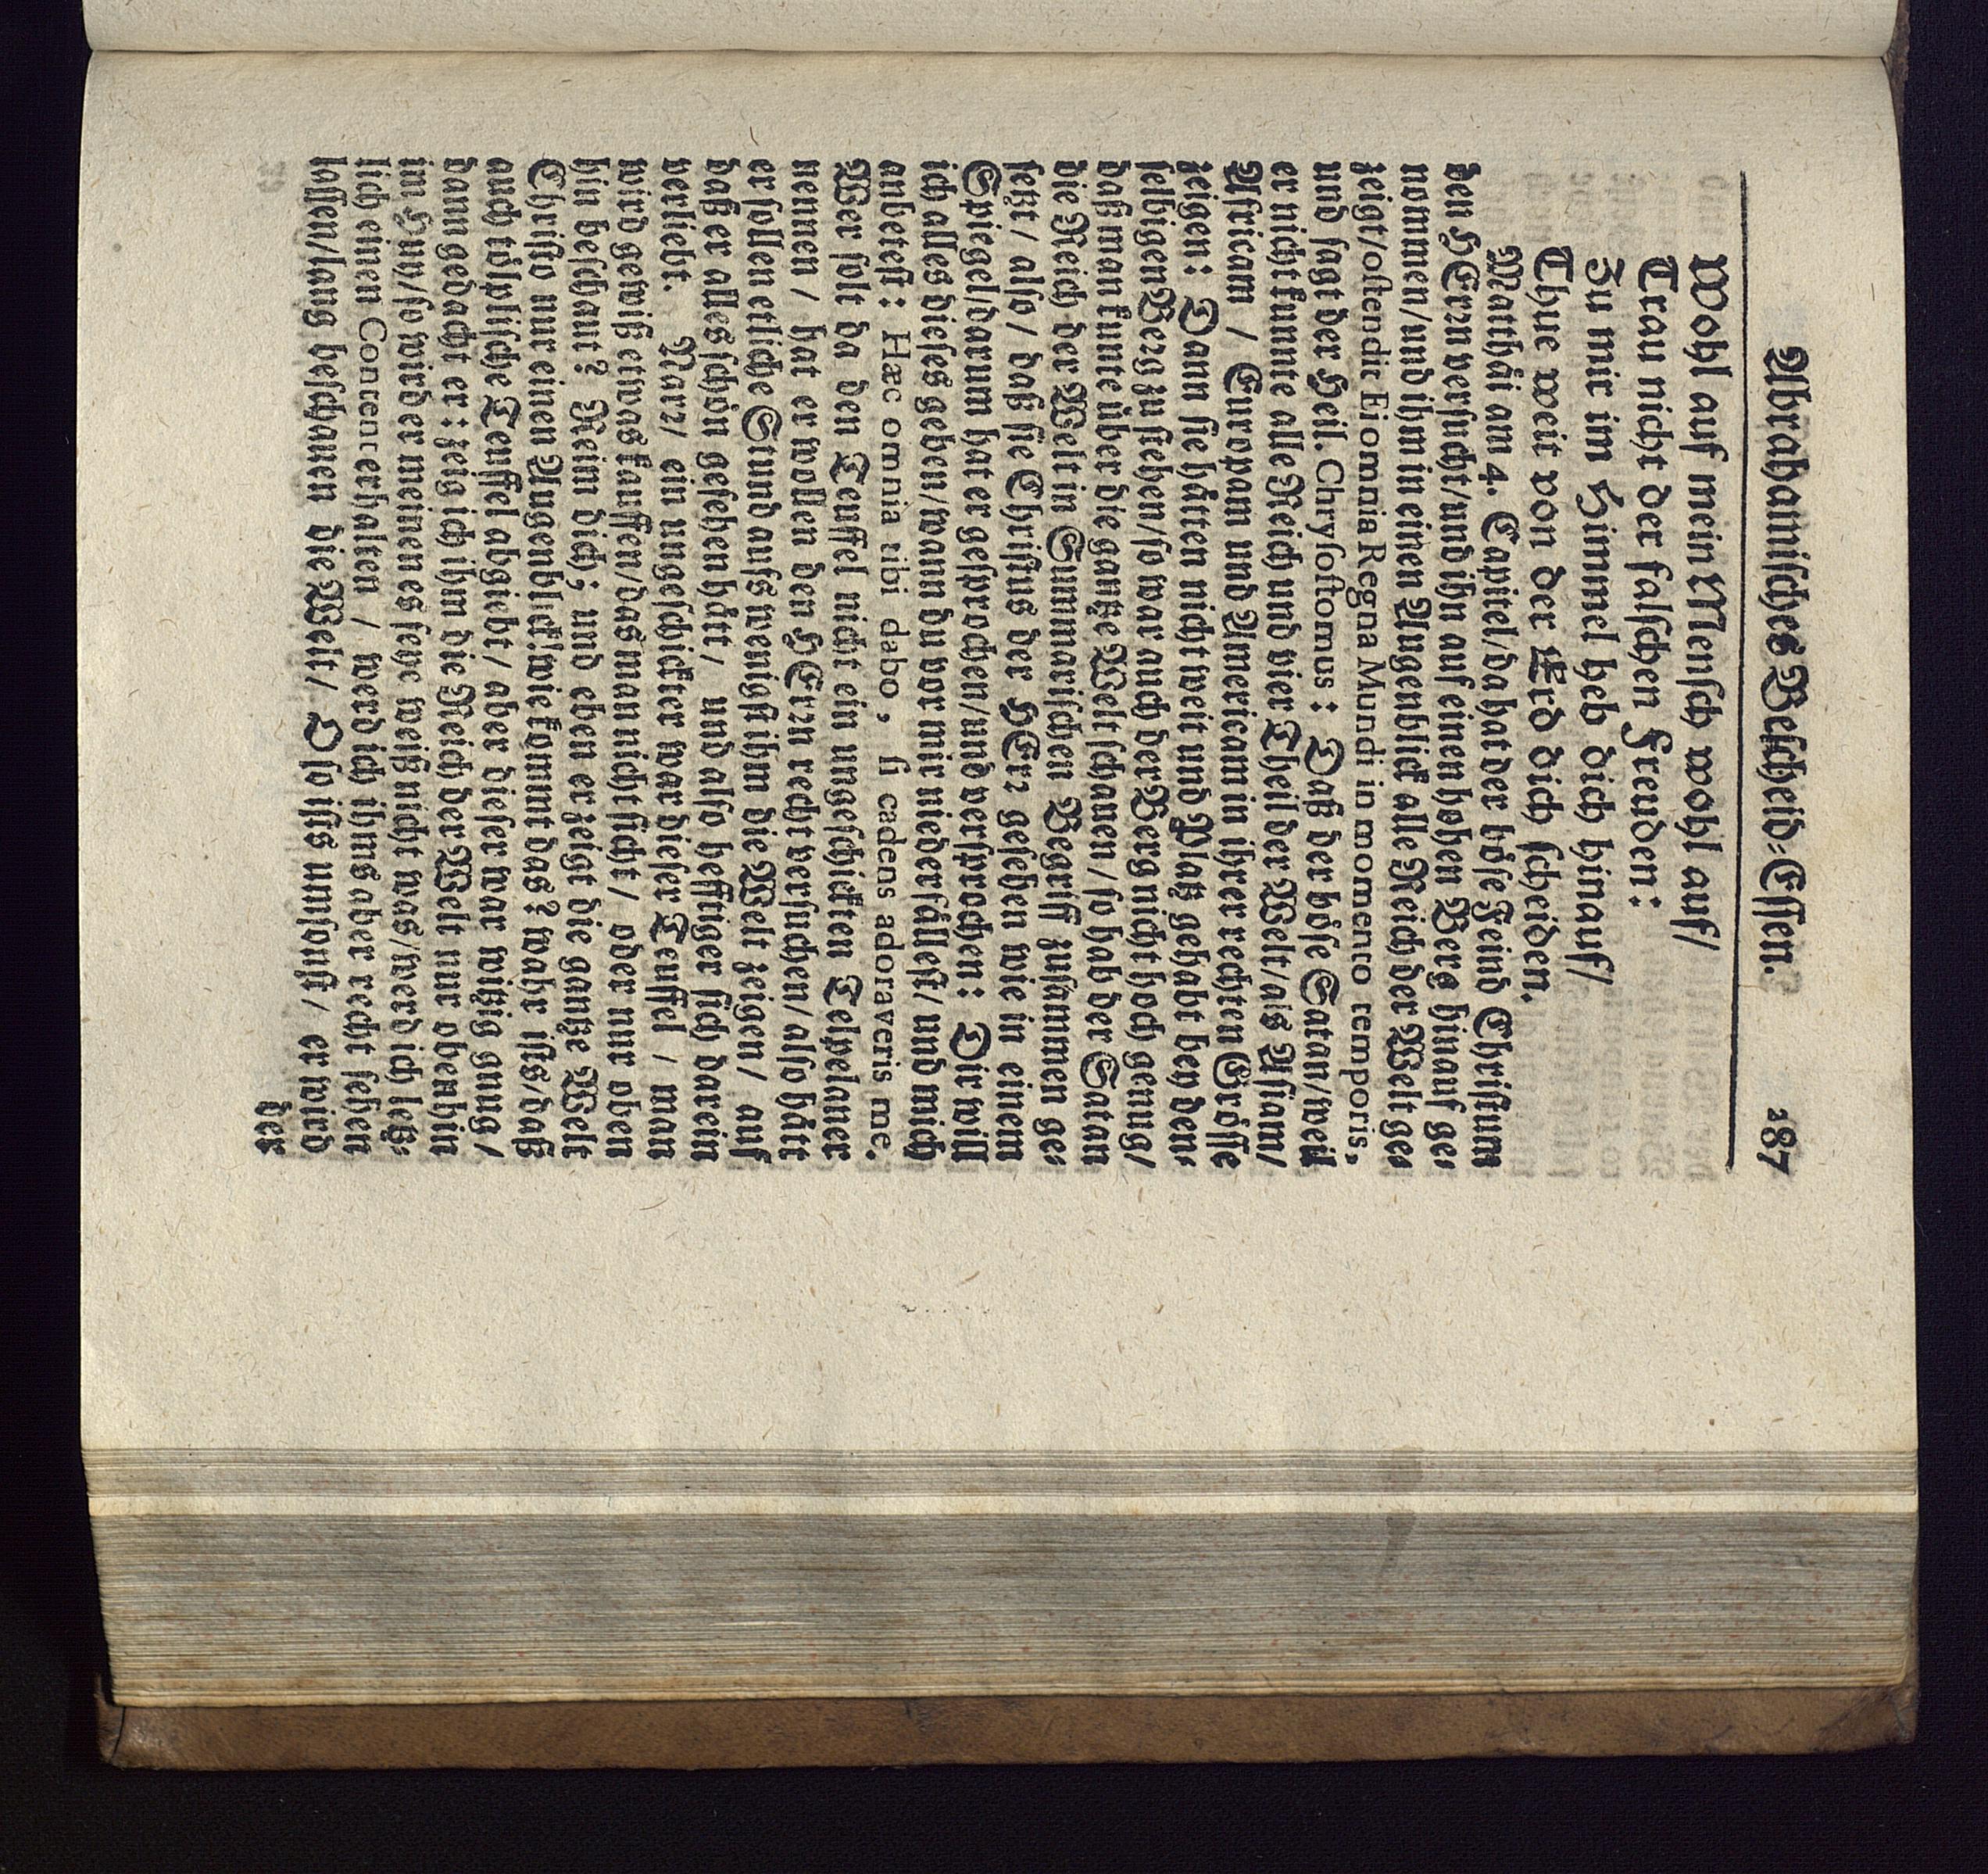 Abrahamisches Bescheid-Essen. 187
Wohl auf mein Mensch wohl auf/
Trau nicht der falschen Freuden:
Zu mir im Himmel heb dich hinauf/
Thue weit von der Erd dich scheiden.
Matthäi am 4. Capitel/da hat der böse Feind Christum
den HErrn versucht/und ihn auf einen hohen Berg hinauf ge-
nommen/und ihm in einen Augenblick alle Reich der Welt ge-
zeigt/ostendit Ei omnia Regna Mundi in momento temporis,
und sagt der Heil. Chrysostomus: Daß der böse Satan/weil
er nicht kunnte alle Reich und vier Theil der Welt/als Asiam/
Africam / Europam und Americam in ihrer rechten Grösse
zeigen: Dann sie hätten nicht weit und Platz gehabt bey den-
selbigen Berg zu stehen/so war auch der Berg nicht hoch genug/
daß man kunte über die gantze Welt schauen/so hab der Satan
die Reich der Welt in Summarischen Begriff zusammen ge-
setzt / also / daß sie Christus der HErr gesehen wie in einem
Spiegel/darum hat er gesprochen/und versprochen: Dir will
ich alles dieses geben/wann du vor mir niederfällest/und mich
anbetest: Hæc omnia tibi dabo, si cadens adoraveris me.
Wer solt da den Teuffel nicht ein ungeschickten Telpelaner
nennen / hat er wollen den HErrn recht versuchen/also hätt
er sollen etliche Stund aufs wenigst ihm die Welt zeigen / auf
daß er alles schön gesehen hätt / und also hefftiger sich darein
verliebt. Narr/ ein ungeschickter war dieser Teuffel / man
wird gewiß etwas kauffen/das man nicht sicht / oder nur oben
hin beschaut? Reim dich; und eben er zeigt die gantze Welt
Christo nur einen Augenblick!wie kommt das? wahr ists/daß
auch tölpische Teuffel abgiebt / aber dieser war witzig gnug /
dann gedacht er: zeig ich ihm die Reich der Welt nur obenhin
im Huy/so wird er meinen es seye weiß nicht was/werd ich letz-
lich einen Content erhalten / werd ich ihms aber recht sehen
lassen/lang beschauen die Welt / So ists umsonst / er wird
der